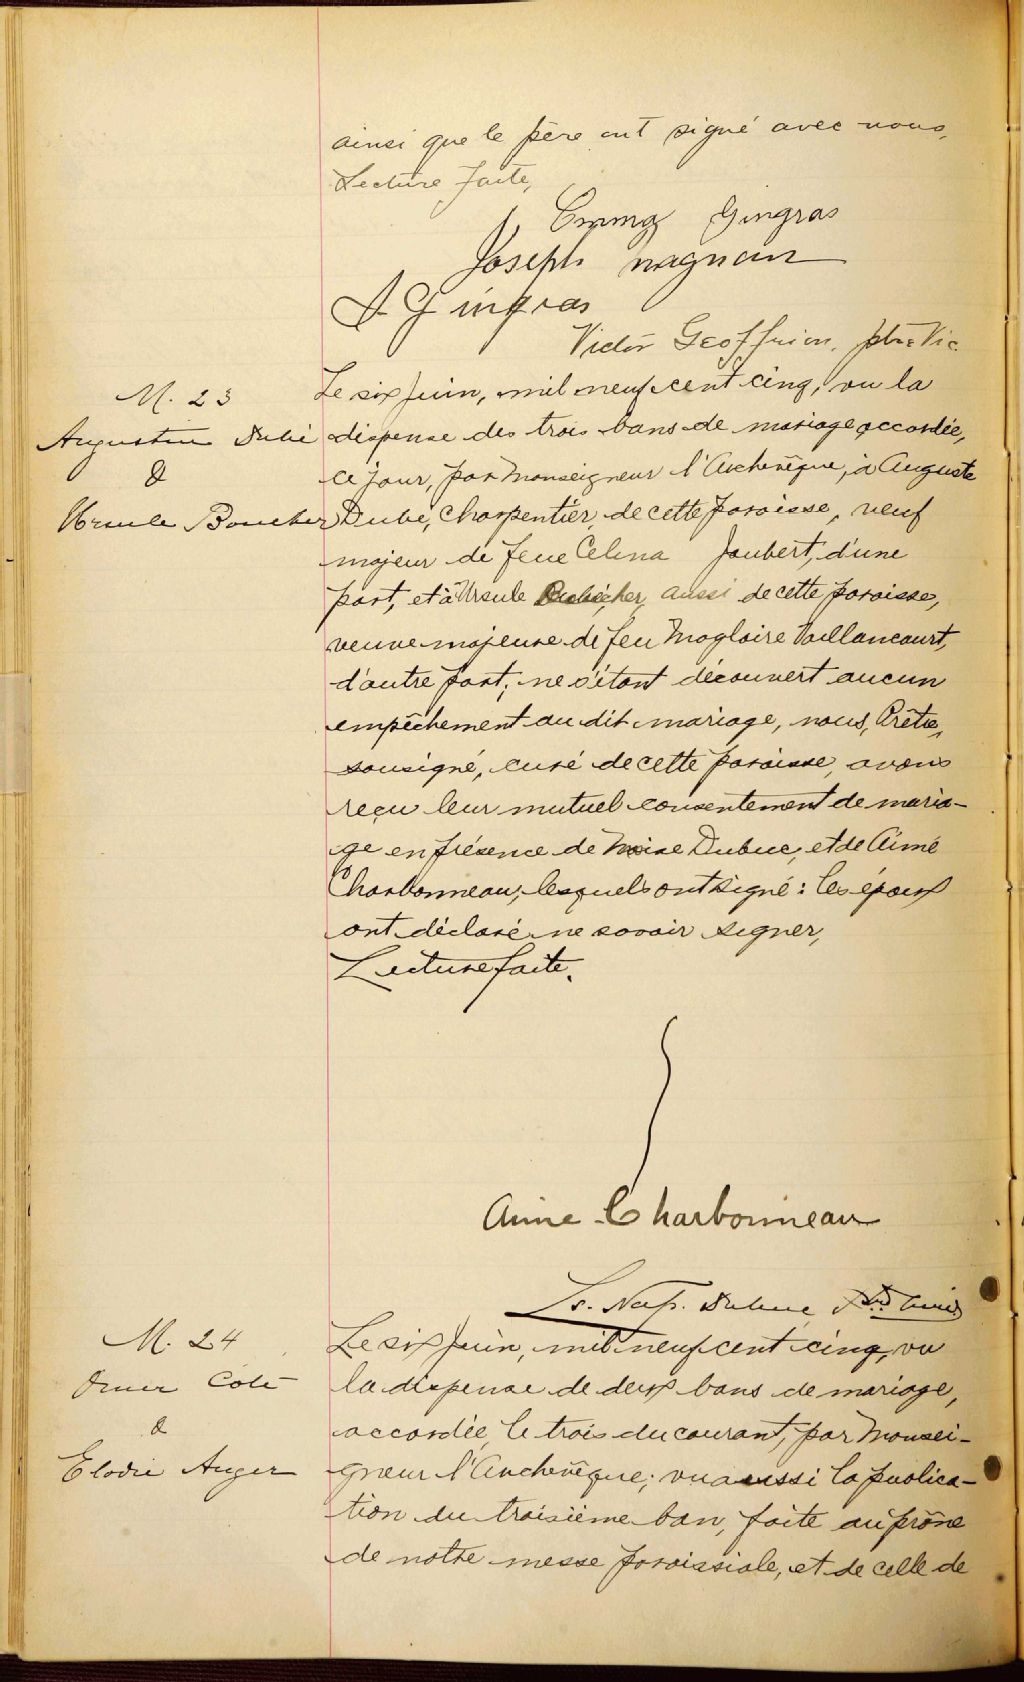 ainsi que le père ont signé avec nous,
Lecture faite,
Emma Gingras
Joseph Magnan
A Gingras
Victor Geoffrion, ptre Vic.
M. 23
Augustin Dubé
&
Ursule Boucher
Le six Juin, mil neuf cent cinq, vu la
dispense des trois bans de mariage accordée,
ce jour, par Monseigneur l'Archevêque, à Auguste
Dubé, Charpentier, de cette paroisse, veuf
majeur de feue Celina Joubert, d'une
part, et à Ursule aussi de cette paroisse,
veuve majeure de feu Magloire Vaillancourt,
d'autre part; ne s'étant découvert aucun
empêchement au dit mariage, nous, Prêtre,
sousigné, curé de cette paroisse, avons
reçu leur mutuel consentement de maria-
ge en présence de Moise Dubuc, et de Aimé
Charbonneau, lesquels ont signé: les époux
ont déclaré ne savoir signer,
Lecture faite.
Aime Charbonneau
Ls. Nap. Dubuc Ptre Curé
M. 24
Omer Coté
&
Elodie Auger
Le six Juin, mil neuf cent cinq, vu
la dispense de deux bans de mariage,
accordée le trois du courant, par Monsei-
gneur l'Archevêque; vu aussi la publica-
tion du troisième ban, faite au prône
de notre messe paroissiale, et de celle de